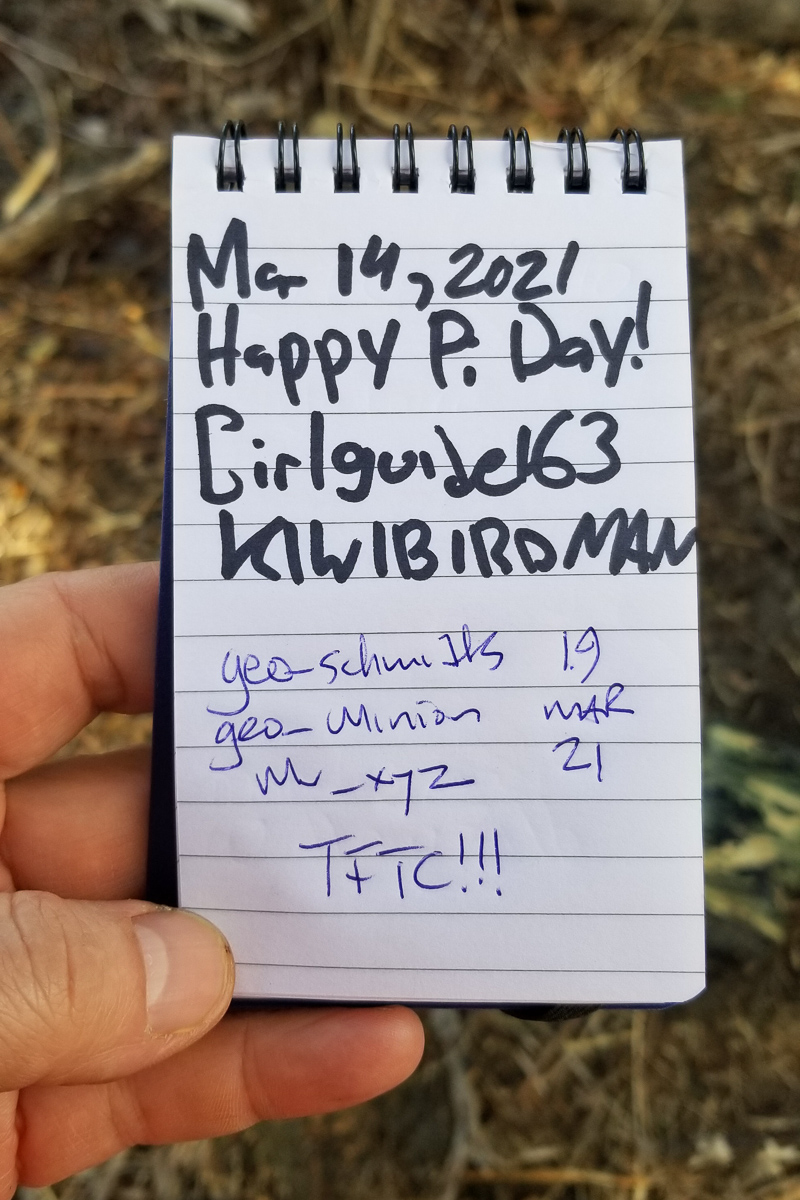 Mar 14, 2021
Happy Pi Day!
Girlguide163
KIWIBIRDMAN
geo-schmidts 19
geo-Minion MAR
Mr_xyz 21
TFTC!!!